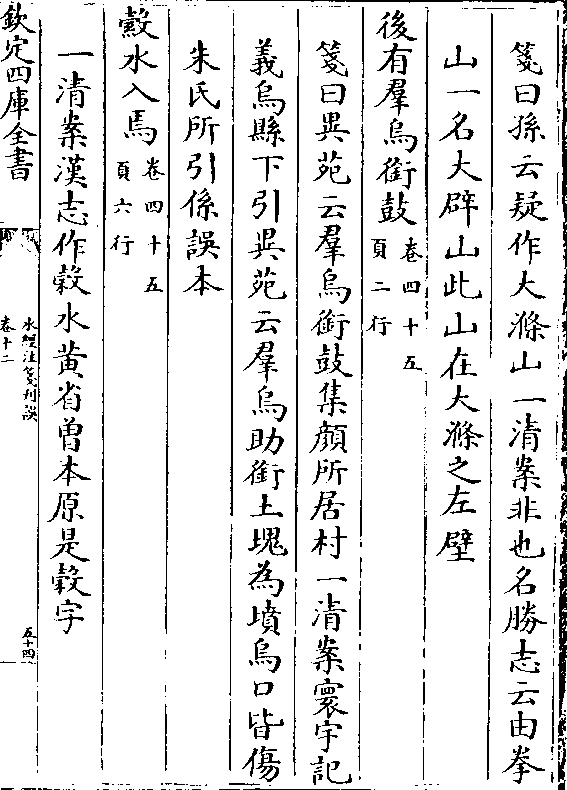 箋曰孫云疑作大滌山一清案非也名勝志云由拳
山一名大辟山此山在大滌之左壁
後有羣烏銜鼓卷四十五頁二行
箋曰異苑云羣烏銜鼓集顔所居村一清案寰宇記
義烏縣下引異苑云羣烏助銜土塊為墳烏口皆傷
朱氏所引係誤本
縠水入焉卷四十五頁六行
一清案漢志作穀水黄省曽本原是穀字
欽定四庫全書
水經注箋刋誤
卷十二
五十四